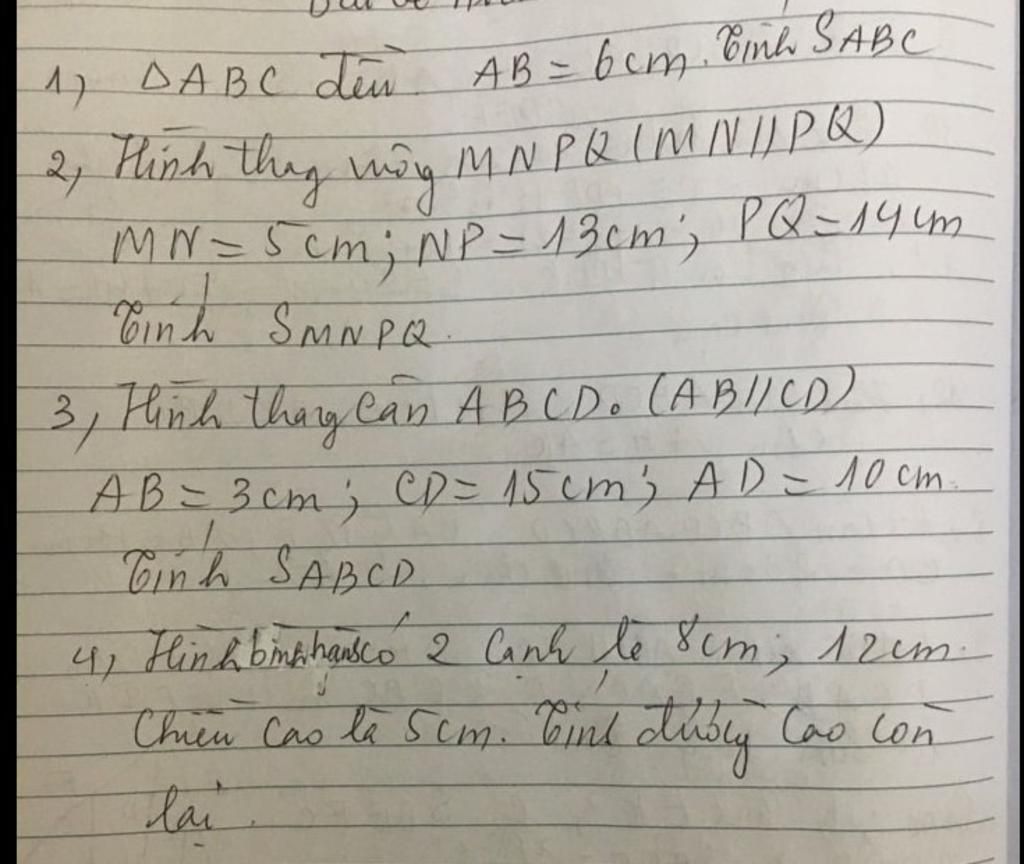 1, ΔABC đều. AB = 6cm. Tính SABC
2, Hình thang vuông MNPQ (MN//PQ)
MN = 5cm; NP = 13cm; PQ = 14cm
Tính SMNPQ.
3, Hình thang cân ABCD. (AB//CD)
AB = 3cm; CD = 15cm; AD = 10cm.
Tính SABCD
4, Hình bình hành có 2 cạnh là 8cm; 12cm.
Chiều cao là 5cm. Tính đường cao còn
lại.